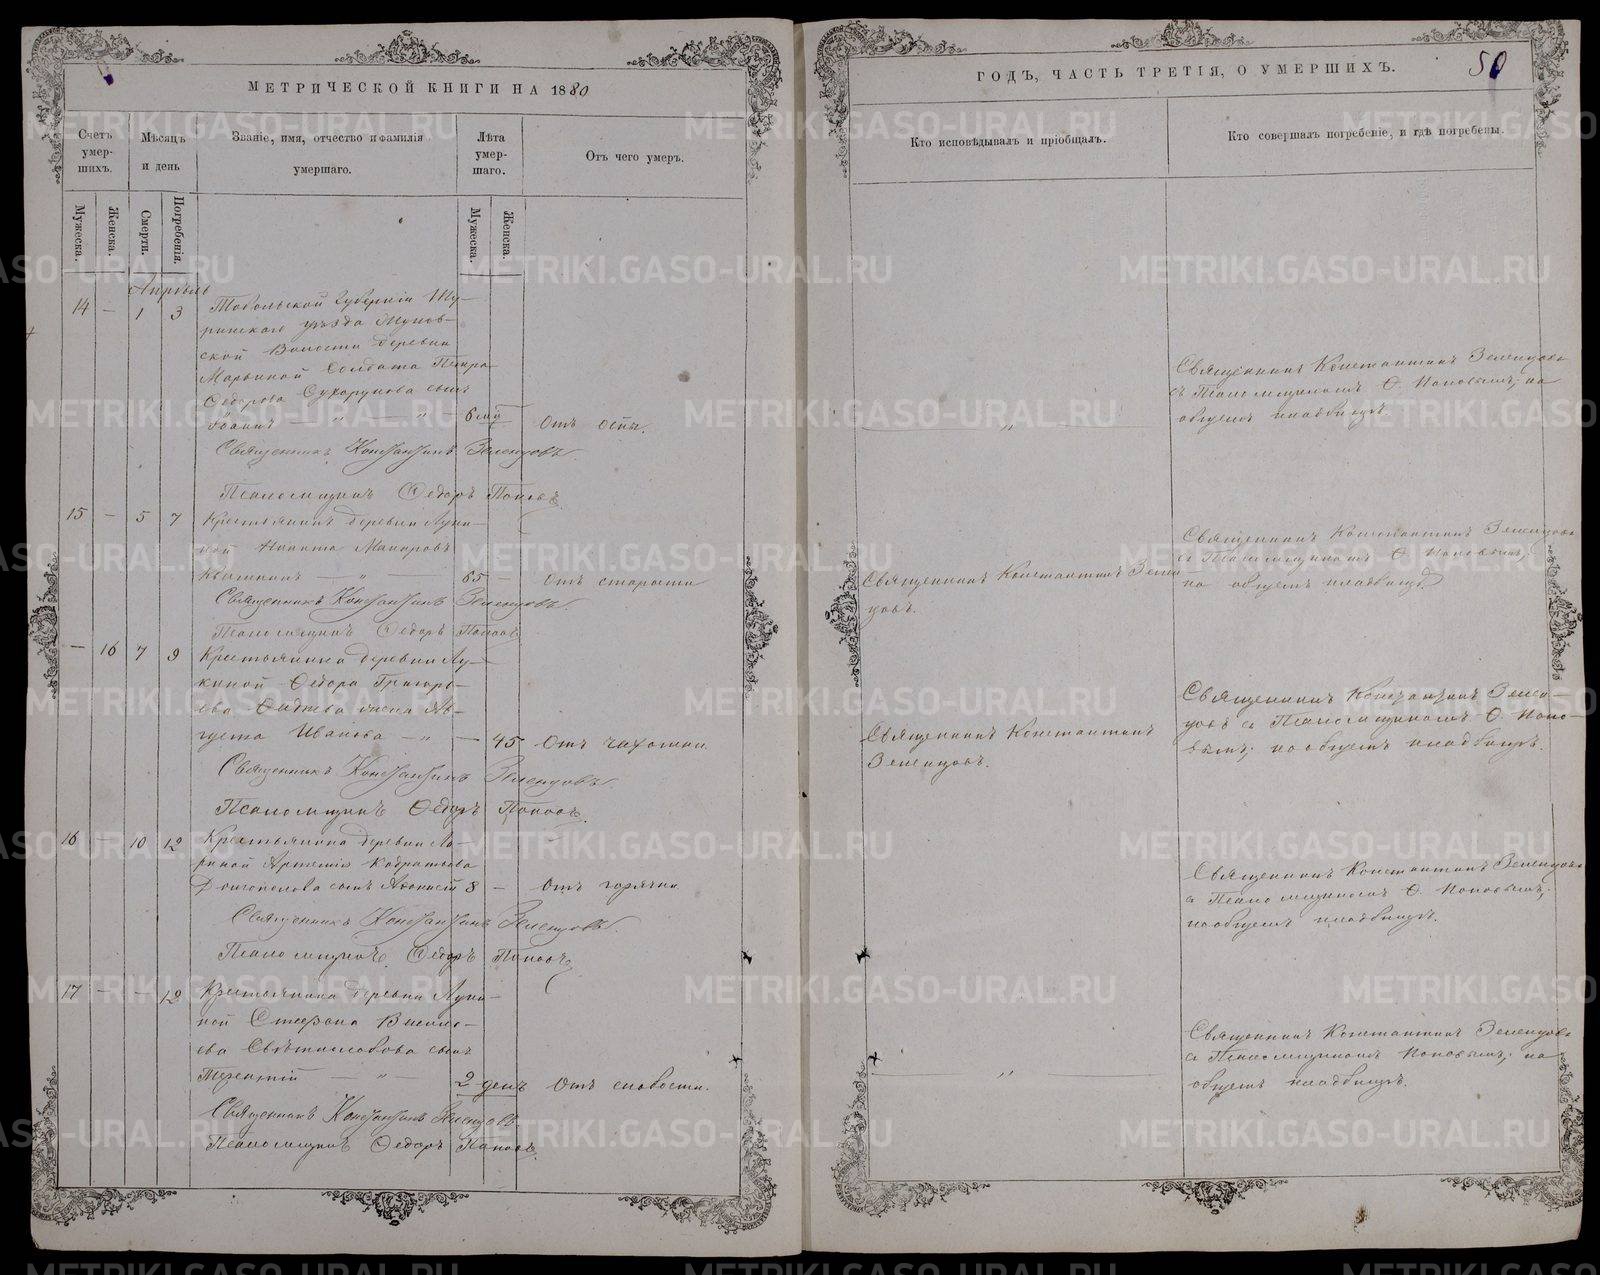 МЕТРИЧЕСКОЙ КНИГИ НА 1880
Счетъ умер-шихъ.
Мѣсяцъ и день
Званіе, имя, отчество и фамилія умершаго.
Лѣта умер-шаго.
Отъ чего умеръ.
Мужеска.
Женска.
Смерти.
Погребенія.
Мужеска.
Женска.
Апрѣль
14 – 1 3 Тобольской Губерніи Ту-
ринскаго уѣзда
ской Волости деревни
Марьиной Солдата Петра
Ѳедорова Сухорукова сынъ
Іоаннъ – „ – „ – 6 мѣ Отъ оспы.
Священникъ Константинъ Зеленцовъ.
Псаломщикъ Ѳедоръ Поповъ
15 – 5 7 Крестьянинъ деревни Луки-
ной Никита Макаровъ
65 – Отъ старости
Священникъ Константинъ Зеленцовъ.
Псаломщикъ Ѳедоръ Поповъ
– 16 7 9 Крестьянина деревни Лу-
киной Ѳедора Григорь-
ева жена Ав-
густа Иванова – „ – 45 Отъ чахотки.
Священникъ Константинъ Зеленцовъ.
Псаломщикъ Ѳедоръ Поповъ.
16 – 10 12 Крестьянина деревни Ла-
риной Артемія Кодратьева
Долгополова сынъ Аѳонасій 8 – Отъ горячки
Священникъ Константинъ Зеленцовъ.
Псаломщикъ Ѳедоръ Поповъ
17 – – 12 Крестьянина деревни Луки-
ной Стефана Василь-
ева сынъ
Терентій – „ – 2 день Отъ слабости.
Священникъ Константинъ Зеленцовъ
Псаломщикъ Ѳедоръ Поповъ.
ГОДЪ, ЧАСТЬ ТРЕТІЯ, О УМЕРШИХЪ.
50
Кто исповѣдывалъ и пріобщалъ.
Кто совершалъ погребеніе, и гдѣ погребены.
Священникъ Константинъ Зеленцовъ
съ Псаломщикомъ Ѳ. Поповымъ; на
общемъ кладбищѣ.
„
Священникъ Константинъ Зелен-
цовъ.
Священникъ Константинъ Зеленцовъ
съ Псаломщикомъ Ѳ. Поповымъ;
на общемъ кладбищѣ
Священникъ Константинъ
Зеленцовъ.
Священникъ Константинъ Зелен-
цовъ съ Псаломщикомъ Ѳ. Попо-
вымъ; на общемъ кладбищѣ.
Священникъ Константинъ Зеленцовъ
съ Псаломщикомъ Ѳ. Поповымъ;
на общемъ кладбищѣ.
„
Священникъ Константинъ Зеленцовъ
съ Псаломщикомъ Поповымъ; на
общемъ кладбищѣ.
METRIKI.GASO-URAL.RU